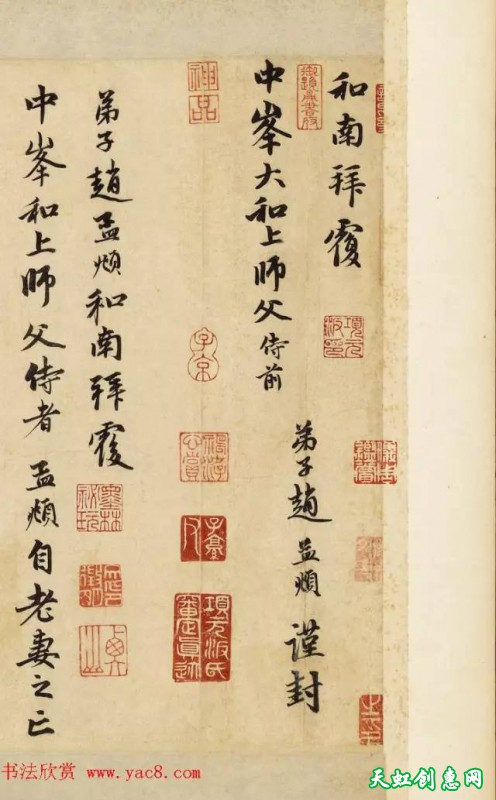 和南拜覆
弟子趙孟頫謹封
中峯大和上師父侍前
弟子趙孟頫和南拜覆
中峯和上師父侍者孟頫自老妻之亡
神品
子京
項元汴氏審定真迹
书法欣赏 www.yac8.com
天虹创惠网